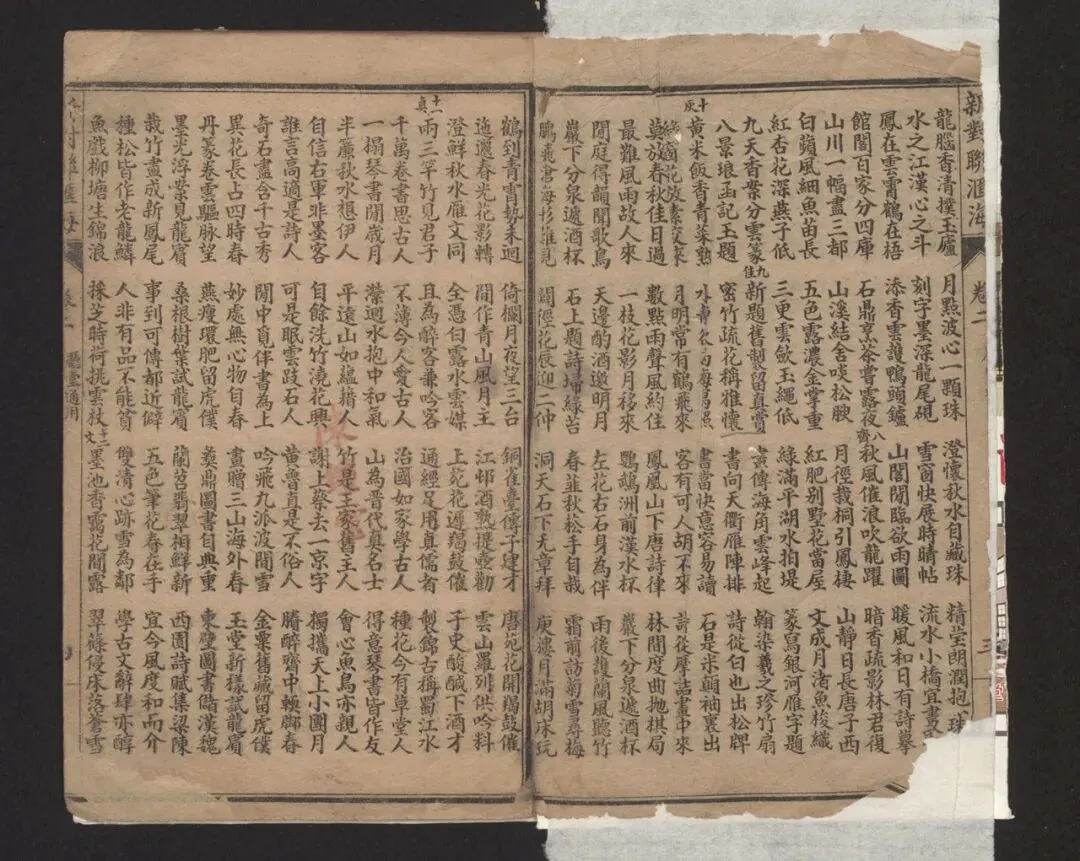 新對聯滙海 卷二 三
龍腦香清撲玉爐 月點波心一顆珠 澄懷秋水自藏珠 精瑩朗潤抱珠
水之江漢心之斗 刻字墨深龍尾硯 雪窗快展時晴帖 流水小橋宜畫
鳳在雲霄鶴在梧 添香雲護鴨頭鑪 山閣閒臨欲雨圖 暖風和日有詩摹
館閣百家分四庫 石鼎烹茶嘗露夜 八齊 秋風催浪吹龍躍 暗香疏影林君復
山川一幅畫三都 山溪結舍啖松腴 月徑栽桐引鳳棲 山靜日長唐子西
白蘋風細魚苗長 五色露濃金掌重 紅肥別墅花當屋 文成月渚魚梭織
紅杏花深燕子低 三更雲歛玉繩低 綠滿平湖水拍堤 篆寫銀河雁字題
九天香案分雲篆 九佳 新題舊製留真賞 畫傳海角雲峰起 翰染羲之珍竹扇
八景琅函記玉題 密竹疏花稱雅懷 書向天衢雁陣排 詩從白也出松牌
十灰 黃米飯香青菜熟 水 書當快意容易讀 石是米顛袖裏出
綠窗花放來 月明常有鶴飛來 客有可人胡不來 詩從摩詰畫中來
莫放春秋佳日過 數點雨聲風約住 鳳凰山下唐詩律 林間度曲拋棋局
最難風雨故人來 一枝花影月移來 鸚鵡洲前漢水杯 巖下分泉遞酒杯
閒庭得韻聞歌鳥 天邊酌酒邀明月 左花右石身為伴 雨後護蘭風聽竹
巖下分泉遞酒杯 石上題詩埽綠苔 春韭秋松手自栽 霜前訪菊雪尋梅
鵬 閒徑花辰迎二仲 洞天石下无章拜 庾樓月滿胡床玩
鶴到青霄勢未迴 倚欄月夜望三台 銅雀臺傳子建才 唐苑花開羯鼓催
迤邐春光花影轉 間作青山風月主 江邨酒熟提壺勸 雲山羅列供吟料
澄鮮秋水雁文同 全憑白露水雲媒 上苑花遲羯鼓催 子史酸鹹下酒才
十一真 兩三竿竹見君子 且為醉客兼吟客 通經足用真儒者 製錦古稱蜀江水
千萬卷書思古人 不薄今人愛古人 治國如家學古人 種花今有草堂人
一榻琴書閒歲月 瀠迴水抱中和氣 山為晉代真名士 得意琴書皆作友
半簾秋水想伊人 平遠山如蘊藉人 竹是王家舊主人 會心魚鳥亦親人
自信右軍非墨客 自餘洗竹澆花興 謝上蔡去一京字 獨攜天上小團月
誰言高適是詩人 可是眠雲跂石人 黃魯直是不俗人 賸醉齋中輭腳春
奇石盡含千古秀 閒中覓伴書為上 吟飛九派波間雪 金粟舊藏留虎僕
異花長占四時春 妙處無心物自春 畫贈三山海外春 玉堂新樣試龍賓
丹篆卷雲驅脉望 燕瘦環肥留虎僕 彝鼎圖書自典重 東壁圖書儲漢魏
墨光浮案見龍賓 桑根樹葉試龍賓 蘭苕翡翠相鮮新 西園詩賦集梁陳
栽竹畫成新鳳尾 事到可傳都近僻 五色筆花春在手 宜今風度和而介
種松皆作老龍鱗 人非有品不能貧 雙清心跡雪為鄰 學古文辭肆亦醇
魚戲柳塘生錦浪 採芝時荷挑雲杖 十二文 墨池香靄花間露 翠篠侵床落蒼雪
對聯滙海 卷二 廳堂通用